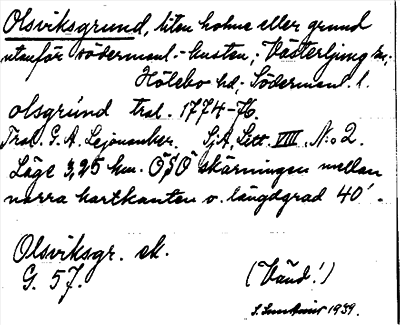 Olsviksgrund, liten holme eller grund
utanför södermanl.-kusten, Västerljung sn,
Hölebo hd. Söderman. l.
olsgrúnd tral. 1774-76.
Trad. G. A. Lejonanker. SjA, Litt. VIII N:o 2.
Läge 3,25 km. ÖSÖ skärningen mellan
norra kartkanten o. längdgrad 40'.
Olsviksgr. sk.
G. 57.
(Vänd!)
1939.